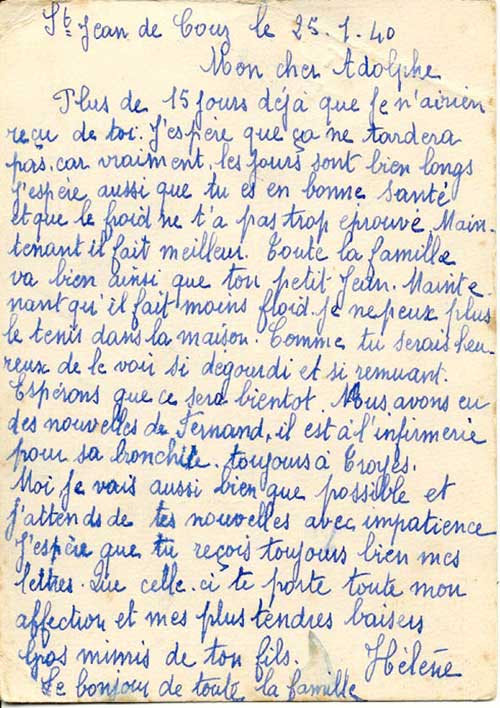 St Jean de Couz le 25.1.40
Mon cher Adolphe
Plus de 15 jours déjà que je n'ai rien
reçu de toi. J'espère que ça ne tardera
pas, car vraiment, les jours sont bien longs
J'espère aussi que tu es en bonne santé
et que le froid ne t'a pas trop eprouvé. Main-
tenant il fait meilleur. Toute la famille
va bien ainsi que ton petit Jean. Mainte
nant qu'il fait moins floid. je ne peux plus
le tenis dans la maison. Comme tu serais heu-
reux de le voir si dégourdi et si remuant.
Espérons que ce sera bientot. Nous avons eu
des nouvelles de Fernand, il est à l'infirmerie
pour sa bronchite. toujours à Troyes.
Moi je vais aussi bien que possible et
j'attends de tes nouvelles avec impatience
J'espère que tu reçois toujours bien mes
lettres. Que celle-ci te porte toute mon
affection et mes plus tendres baisers
Gros mimis de ton fils. Hélène
Le bonjour de toute la famille